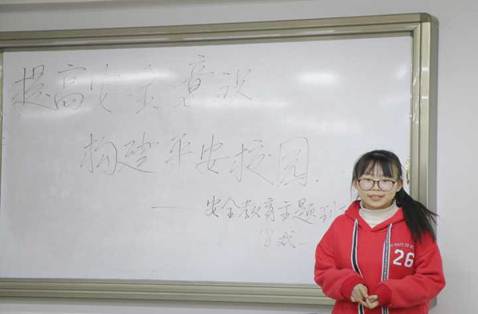 提高安全意识
构建平安校园
——安全教育主题
26